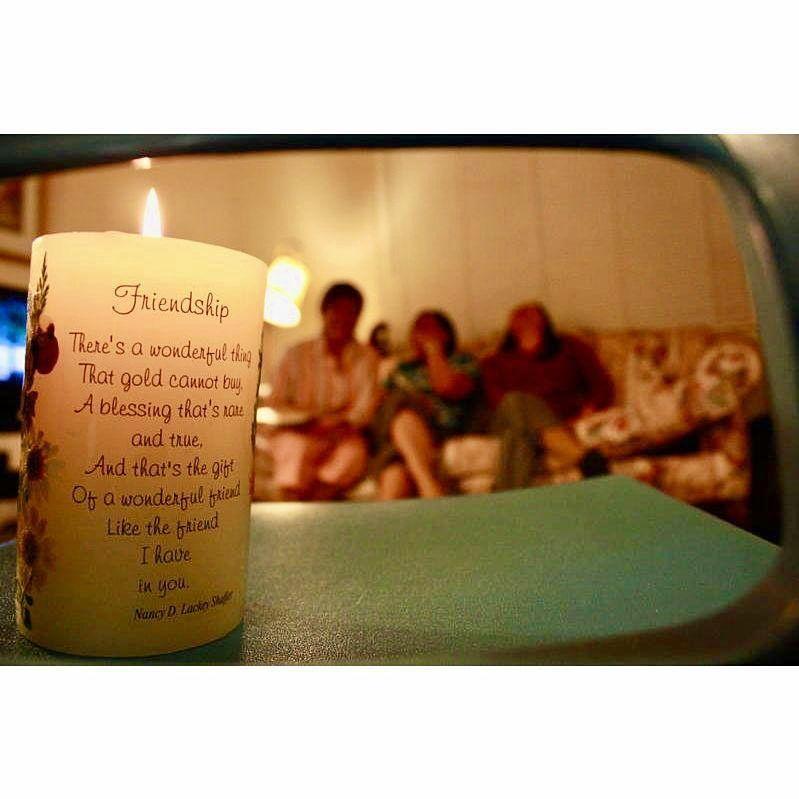 Friendship
There's a wonderful thing
That gold cannot buy,
A blessing that's rare
and true,
And that's the gift
Of a wonderful friend
Like the friend
I have
in you.
Nancy D. Lackey Shaffer